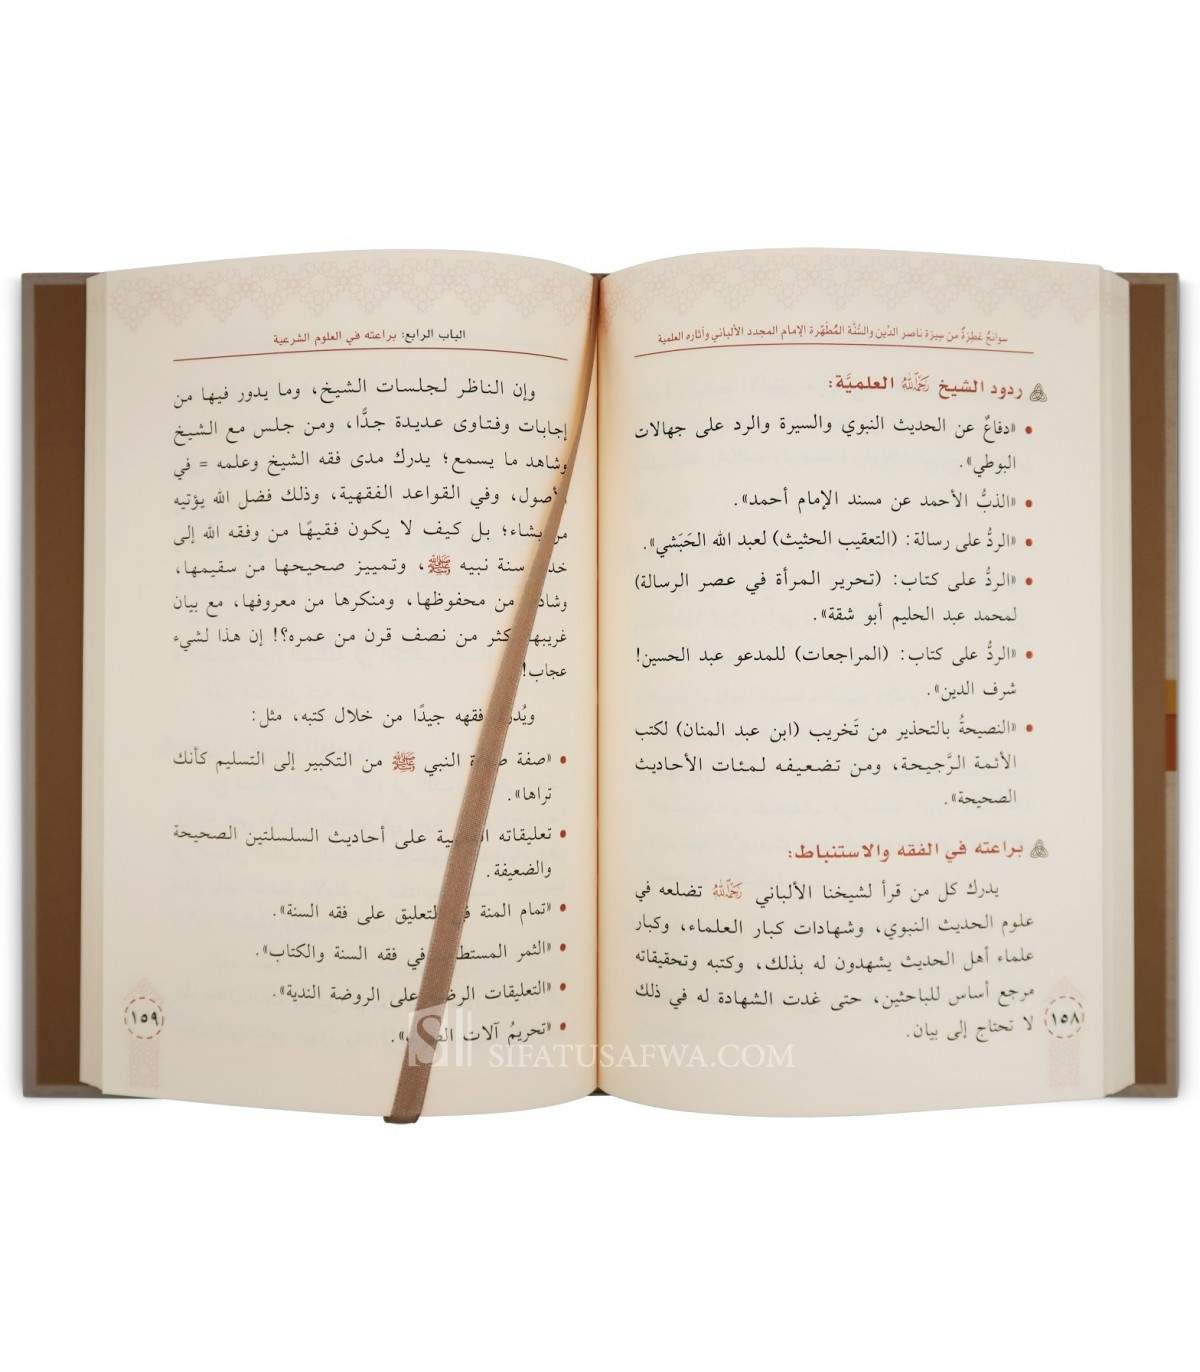 سوانحُ عَطِرَةٌ من سِيرَة ناصر الدِّين والسُّنَّة المُطَهَّرة الإمام المجدد الألباني وآثاره العلمية
ردود الشيخ رَحِمَهُ اللَّهُ العلميَّة:
• «دفاعٌ عن الحديث النبوي والسيرة والرد على جهالات
البوطي».
• «الذبُّ الأحمد عن مسند الإمام أحمد».
• «الردُّ على رسالة: (التعقيب الحثيث) لعبد الله الحَبَشي».
• «الردُّ على كتاب: (تحرير المرأة في عصر الرسالة)
لمحمد عبد الحليم أبو شقة».
• «الردُّ على كتاب: (المراجعات) للمدعو عبد الحسين!
شرف الدين».
• «النصيحةُ بالتحذير من تَخريب (ابن عبد المنان) لكتب
الأئمة الرَّجيحة، ومن تضعيفه لمئات الأحاديث
الصحيحة».
براعته في الفقه والاستنباط:
يدرك كل من قرأ لشيخنا الألباني رَحِمَهُ اللَّهُ تضلعه في
علوم الحديث النبوي، وشهادات كبار العلماء، وكبار
علماء أهل الحديث يشهدون له بذلك، وكتبه وتحقيقاته
مرجع أساس للباحثين، حتى غدت الشهادة له في ذلك
لا تحتاج إلى بيان.
١٥٨
الباب الرابع: براعته في العلوم الشرعية
وإن الناظر لجلسات الشيخ، وما يدور فيها من
إجابات وفتاوى عديدة جدًّا، ومن جلس مع الشيخ
وشاهد ما يسمع؛ يدرك مدى فقه الشيخ وعلمه = في
الأصول، وفي القواعد الفقهية، وذلك فضل الله يؤتيه
من يشاء؛ بل كيف لا يكون فقيهًا من وفقه الله إلى
سنة نبيه ﷺ، وتمييز صحيحها من سقيمها،
من محفوظها، ومنكرها من معروفها، مع بيان
غريبها كثر من نصف قرن من عمره؟! إن هذا لشيء
عجاب!
فقهه جيدًا من خلال كتبه، مثل:
• «صفة النبي ﷺ من التكبير إلى التسليم كأنك
تراها».
• تعليقاته على أحاديث السلسلتين الصحيحة
والضعيفة.
• «تمام المنة التعليق على فقه السنة».
• «الثمر في فقه السنة والكتاب».
• «التعليقات على الروضة الندية».
• «تحريمُ آلات».
١٥٩
SIFATUSAFWA.COM